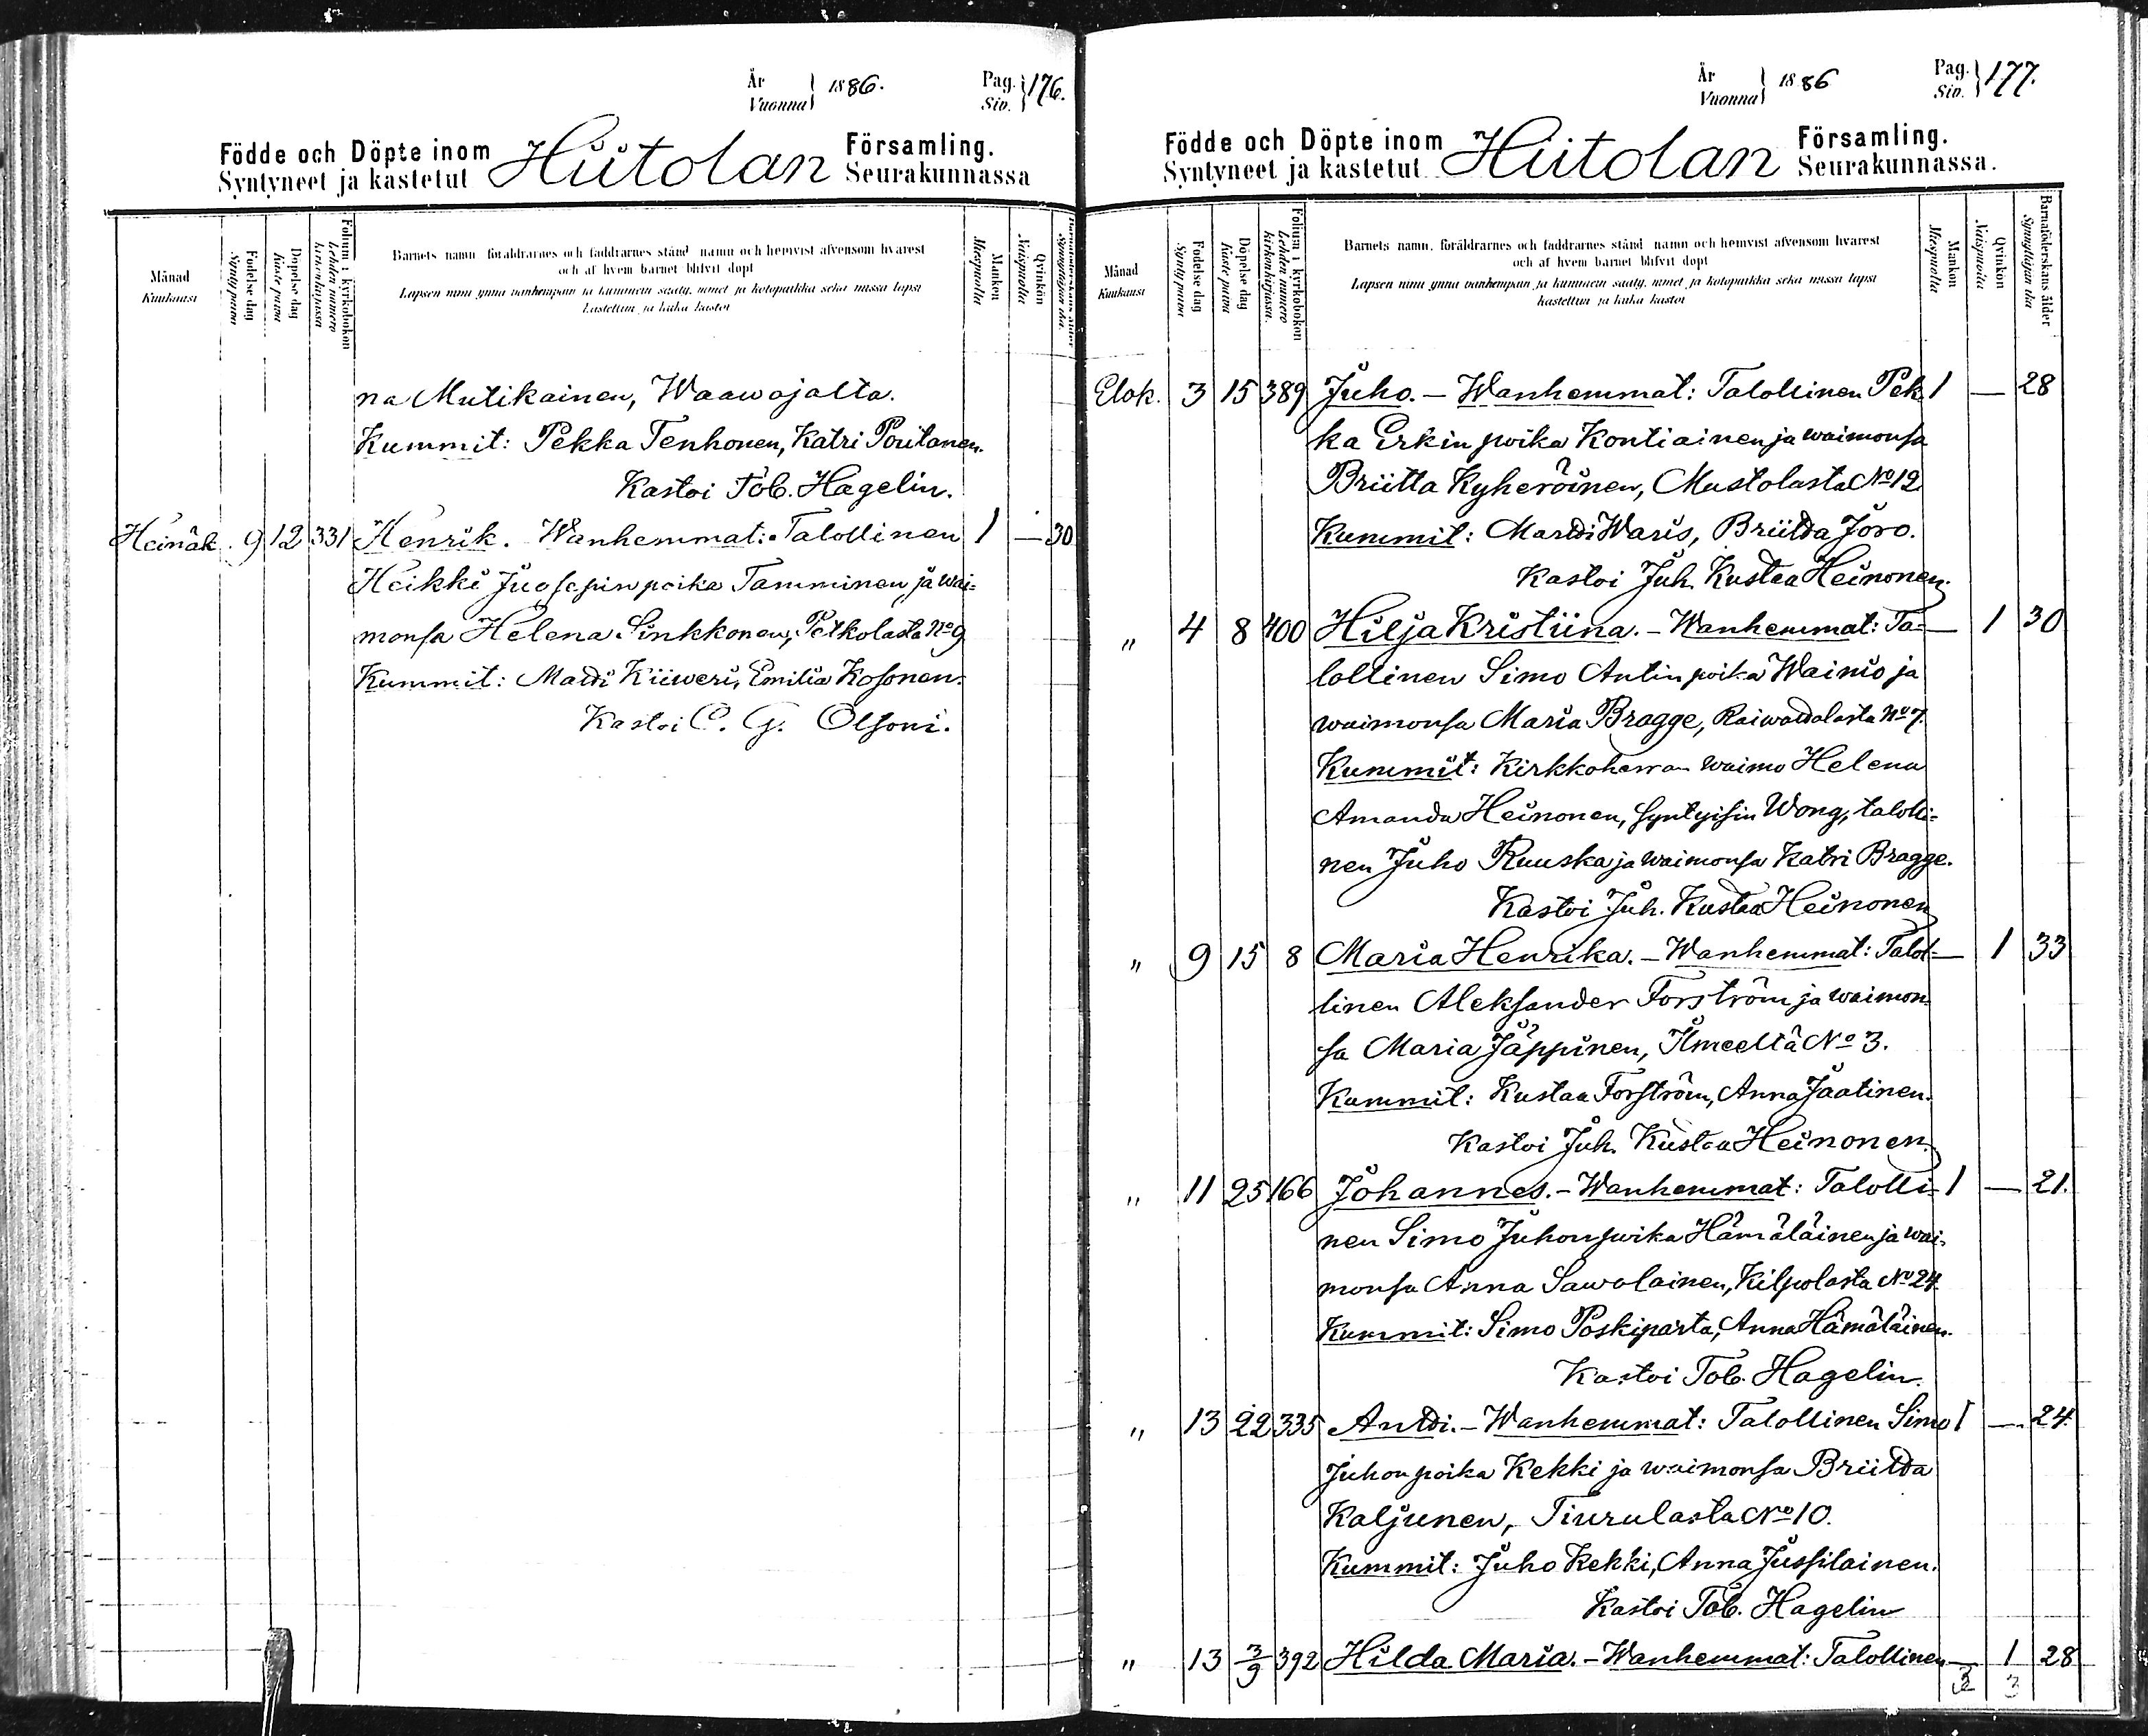 År
Vuonna } 1886.
Pag.
Siv. } 176.
Födde och Döpte inom Hiitolan Församling.
Syntyneet ja kastetut Seurakunnassa
Månad
Kuukausi
Födelse dag
Synty päivä
Döpelse dag
Kaste päivä
Folium i kyrkoboken
Lehden numero kirkonkirjassa
Barnets namn föräldrarnes och faddrarnes stånd namn och hemvist äfvensom hvarest
och af hvem barnet blifvit döpt
Lapsen nimi ynnä vanhempain ja kummein sääty, nimet ja kotopaikka sekä missä lapsi
kastettiin ja kuka kastoi
Mankön
Miespuolia
Qvinkön
Naispuolia
Barnaföderskans ålder
Synnyttäjän ikä.
na Mutikainen, Waawojalta.
Kummit: Pekka Tenhonen, Katri Poutanen.
Kastoi Tob. Hagelin.
Heinäk. 9 12 331 Henrik. Wanhemmat: Talollinen 1 — 30
Heikki Juosepinpoika Tamminen ja wai=
monsa Helena Sinkkonen, Petkolasta No 9
Kummit: Matti Kiiweri, Emilia Kosonen.
Kastoi C. G. Olsoni.
År
Vuonna } 1886
Pag.
Siv. } 177.
Födde och Döpte inom Hiitolan Församling.
Syntyneet ja kastetut Seurakunnassa.
Månad
Kuukausi
Födelse dag
Synty päivä
Döpelse dag
Kaste päivä
Folium i kyrkoboken
Lehden numero kirkonkirjassa.
Barnets namn, föräldrarnes och faddrarnes stånd namn och hemvist äfvensom hvarest
och af hvem barnet blifvit döpt
Lapsen nimi ynnä vanhempain ja kummein sääty, nimet ja kotopaikka sekä missä lapsi
kastettiin ja kuka kastoi
Mankön
Miespuolia
Qvinkön
Naispuolia
Barnaföderskans ålder
Synnyttäjän ikä
Elok. 3 15 389 Juho. — Wanhemmat: Talollinen Pek 1 — 28
ka Erkinpoika Kontiainen ja waimonsa
Briitta Kyheröinen, Mustolasta No 12
Kummit: Matti Waris, Briitta Joro.
Kastoi Juh. Kustaa Heinonen.
„ 4 8 400 Hilja Kristiina. — Wanhemmat: Ta= — 1 30
lollinen Simo Antinpoika Wainio ja
waimonsa Maria Bragge, Raiwattalasta No 7.
Kummit: Kirkkoherran waimo Helena
Amanda Heinonen, syntyisin Wong, talolli=
nen Juho Ruuska ja waimonsa Katri Bragge.
Kastoi Juh. Kustaa Heinonen
„ 9 15 8 Maria Henrika. — Wanhemmat: Talol= — 1 33
linen Aleksander Forström ja waimon
sa Maria Jäppinen, Ilmeeltä No 3.
Kummit: Kustaa Forström, Anna Jaatinen.
Kastoi Juh. Kustaa Heinonen.
„ 11 25 166 Johannes. — Wanhemmat: Talolli= 1 — 21.
nen Simo Juhonpoika Hämäläinen ja wai=
monsa Anna Sawolainen, Kilpolasta No 24.
Kummit: Simo Poskiparta, Anna Hämäläinen.
Kastoi Tob. Hagelin.
„ 13 22 335 Antti. — Wanhemmat: Talollinen Simo 1 — 24.
Juhonpoika Kekki ja waimonsa Briitta
Kaljunen, Tiurulasta No 10.
Kummit: Juho Kekki, Anna Jussilainen.
Kastoi Tob. Hagelin
„ 13 3/9 392 Hilda Maria. — Wanhemmat: Talollinen — 1 28
3 3